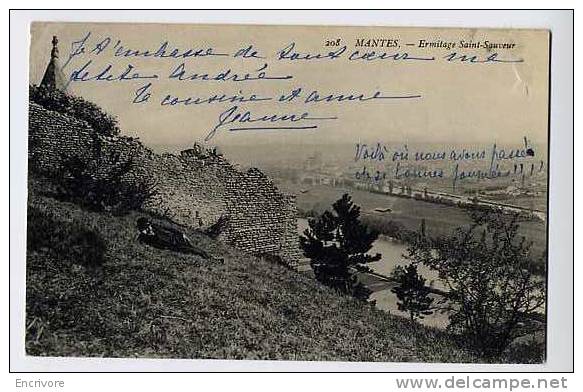 208 MANTES. — Ermitage Saint-Sauveur
Je t'embrasse de tout cœur ma
petite Andrée
Ta cousine et amie
Jeanne
Voilà où nous avons passé
de si bonnes journées !!!
© Encrivore
http://encrivore.delcampe.com